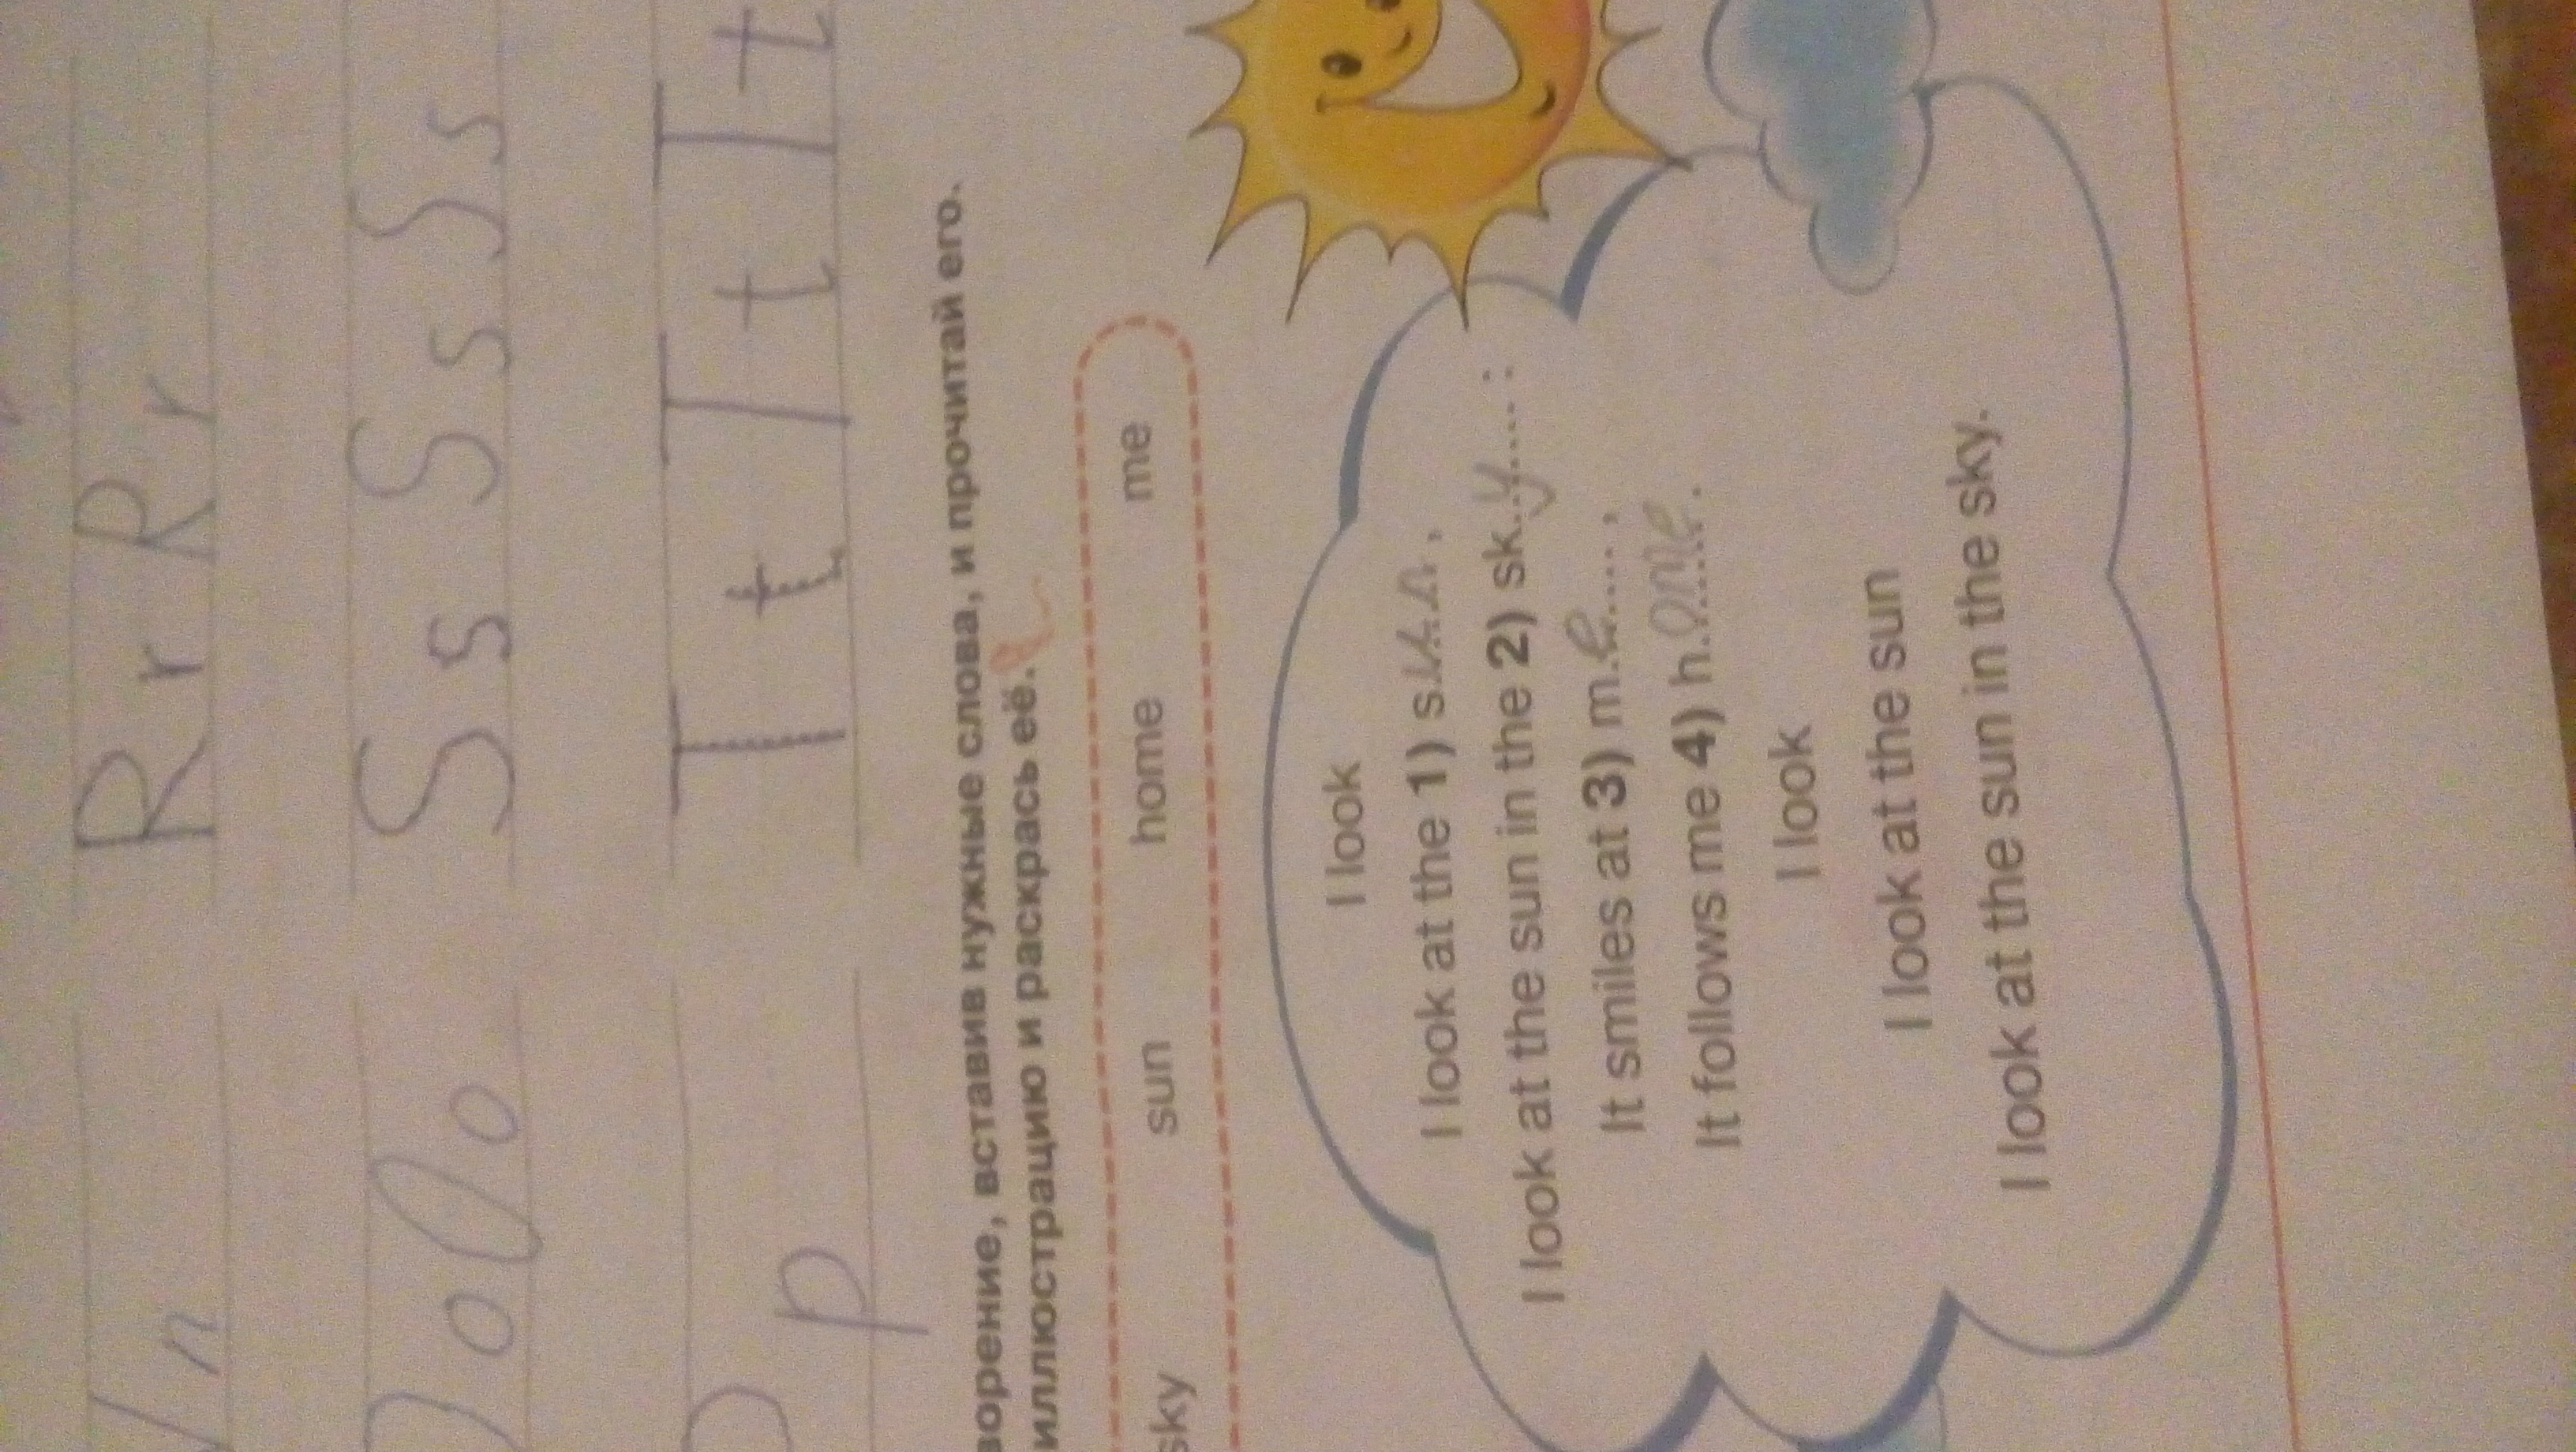 n R r R r
o O o S s S s S s
p T t T t T t
ворение, вставив нужные слова, и прочитай его.
иллюстрацию и раскрась её.
sky sun home me
I look
I look at the 1) sun,
I look at the sun in the 2) sky :
It smiles at 3) me ,
It follows me 4) home.
I look
I look at the sun
I look at the sun in the sky.